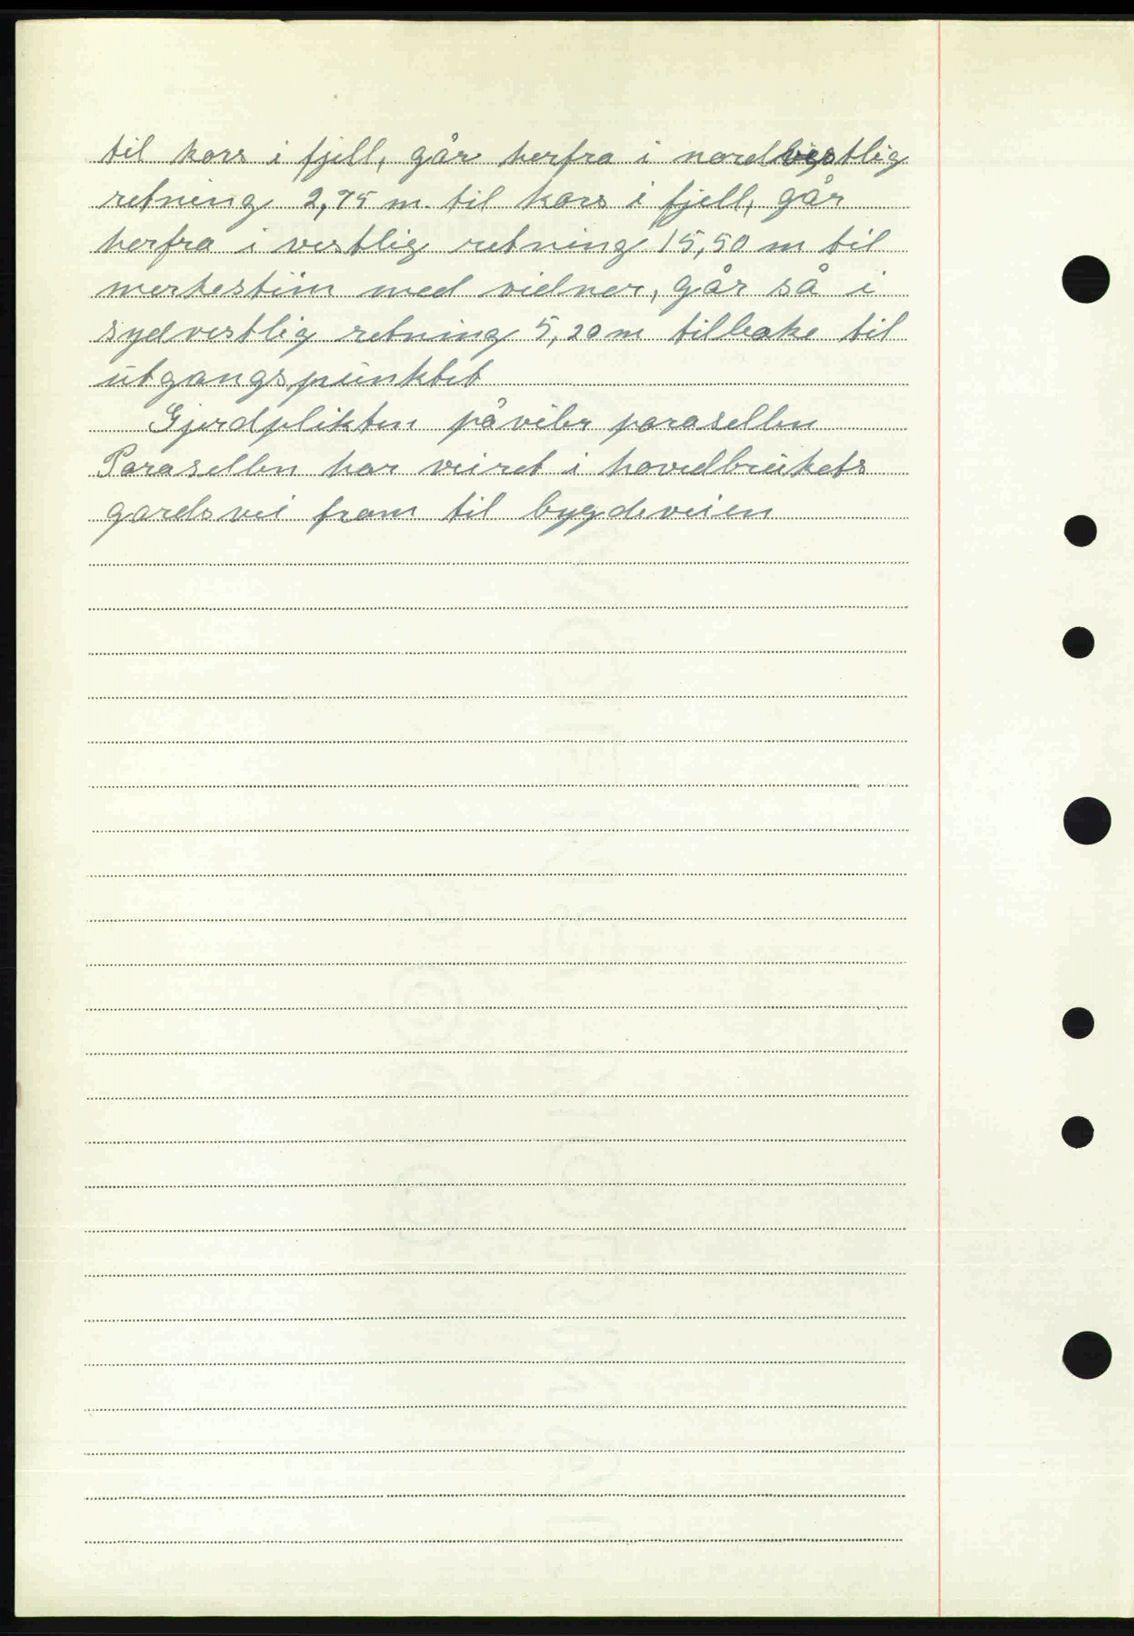 til kors i fjell, går herfra i nordvestlig
retning 2,75 m. til kors i fjell, går
herfra i vestlig retning 15,50 m til
merkestein med vidner, går så i
sydvestlig retning 5,20 m tilbake til
utgangspunktet
Gjerdplikten påviler parasellen
Parasellen har veiret i hovedbrukets
gardsvei fram til bygdeveien